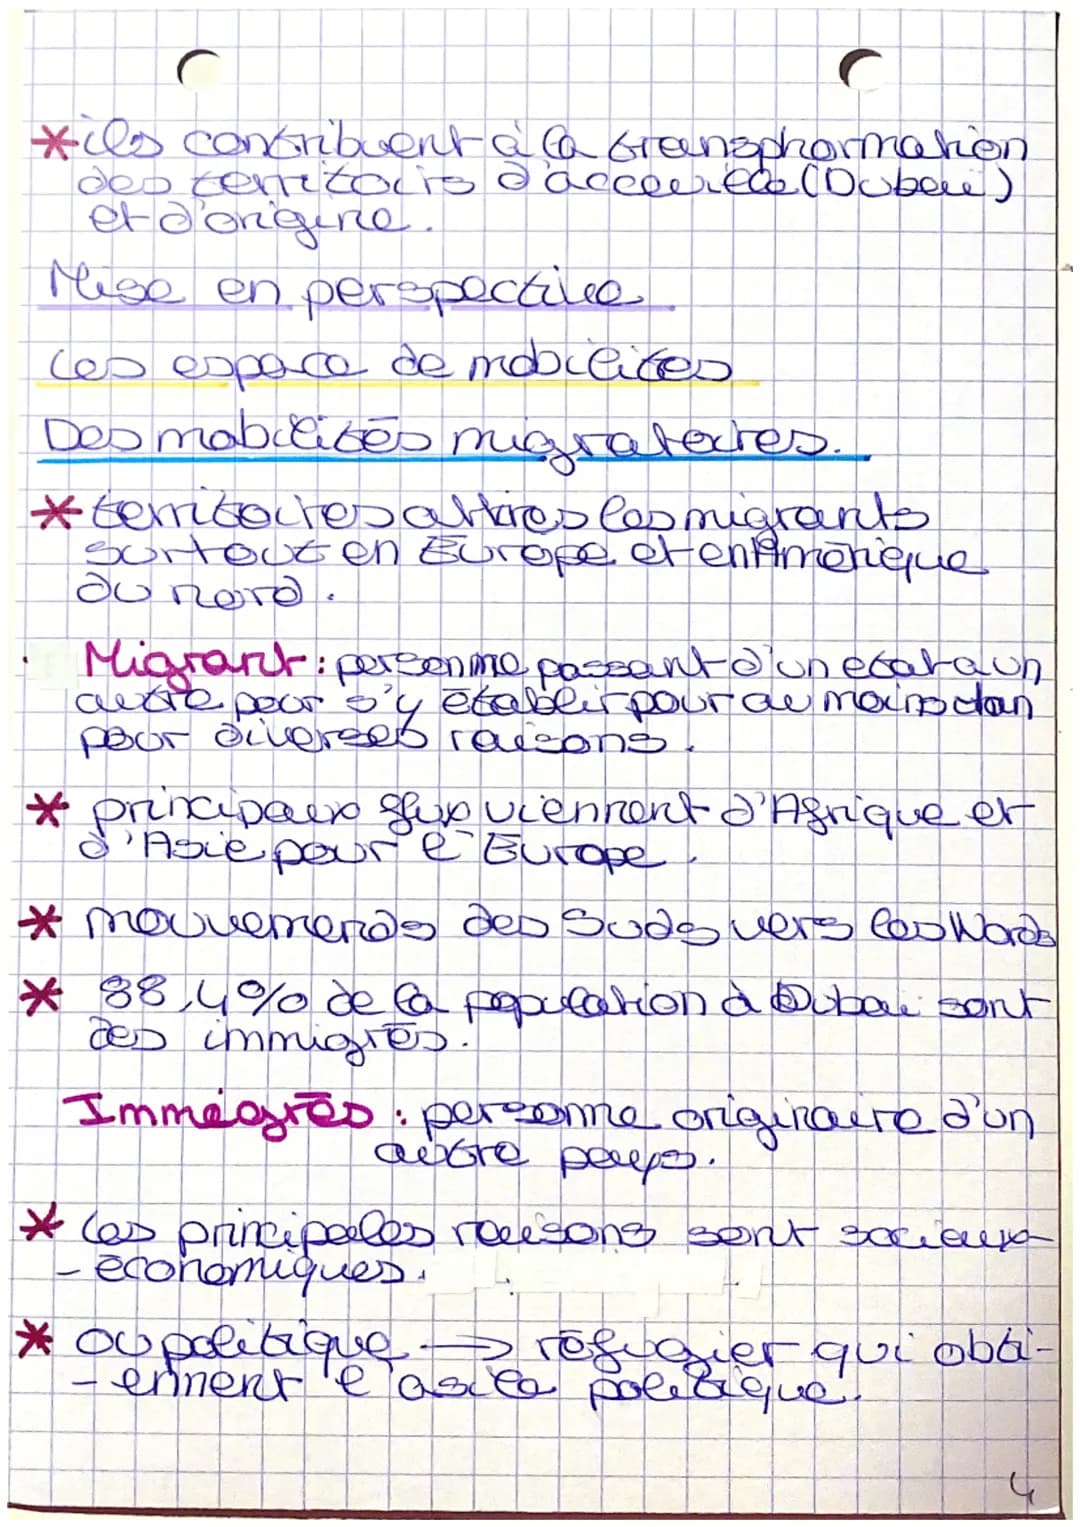 *ils contribuent à la transphormation
des territoiris d'accueille (Dubaï)
et d'origine.
Mise en perspective
Les espace de mobilités
Des mobilités migratoires.
* territoires attires les migrants
surtout en Europe et en Amérique
du nord.
Migrant : personne passant d'un état a un
autre pour s'y établir pour au moins 1 an
pour diverses raisons.
* principaux flux viennent d'Afrique et
d'Asie pour l'Europe.
* mouvements des Suds vers les Nords
* 88,4% de la population à Dubaï sont
des immigrés.
Immigrés : personne originaire d'un
autre pays.
* les principales raisons sont sociaux-
- économiques.
* ou politique → réfugier qui obti-
- ennent l'asile politique.
4